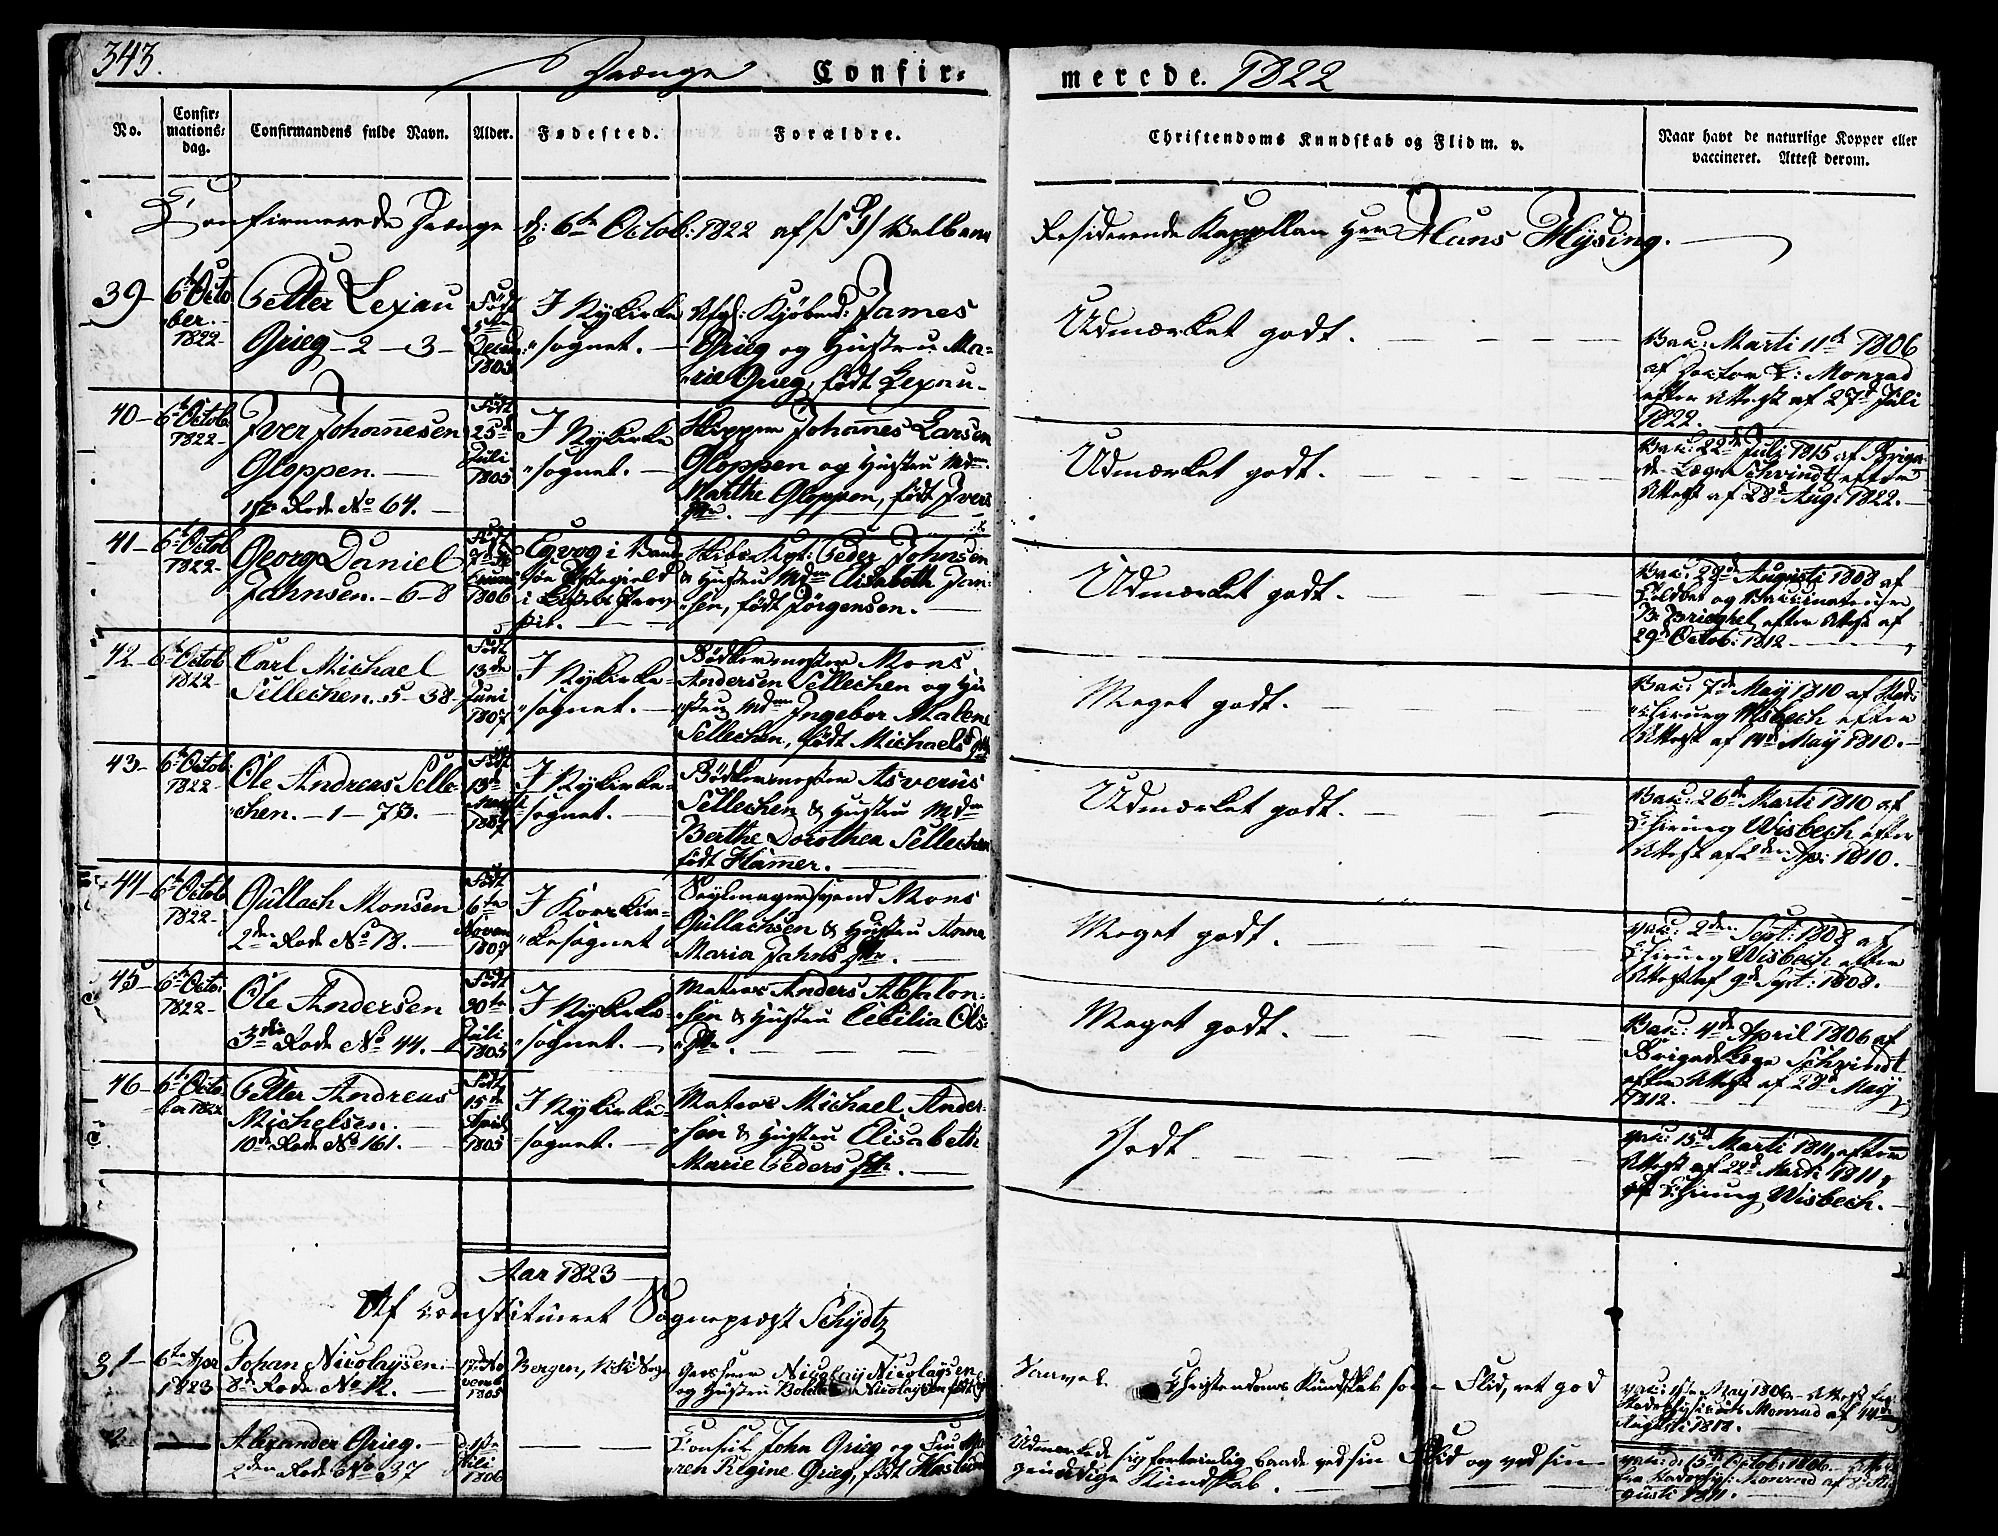 343.
Drænge Confir=
merede. 1822
No.
Confir=
mations=
dag.
Confirmandens fulde Navn.
Alder.
Fødested.
Forældre.
Christendoms Kundskab og Flid m. v.
Naar havt de naturlige Kopper eller
vaccineret. Attest derom.
Confirmerede Drænge d: 6te Octob: 1822 af
Residerende Kapellan Herr Hans Mysing.
39 -
6te Octo
ber.
1822 -
Petter Lexau
Grieg - 2 - 3 -
Født
5te
Decem:
1805
I Nykirke
"sognet. -
Kjøbmd: James
Grieg og Hustru Ma-
"rie Grieg, født Lexau -
Udmærket godt.
Vac: Marti 11te 1806
af Doctor Monrad
efter Attest af 27d Juli
1822.
40 -
6te Octob
1822 -
Iver Johannesen
Gloppen. -
1ste Rode No 64. -
Født
25de
Juli
1805
I Nykirke
"sognet. -
Skipper Johannes Larsen
Gloppen og Hustru Mdm
Marthe Gloppen, født Ivers
Dtr.
Udmærket godt.
Vac: 22d Juli 1815 af Briga
de Læge Schvindt efter
Attest af 28d Aug: 1822. -
41 -
6te Octob
1822 -
Georg Daniel
Jahnsen. - 6 - 8
Født
1806
Skibs Kpt: Peder Johnsen
& Hustru Mdm Elisabeth Jan-
"sen, født Jørgensen. -
Udmærket godt.
Vac: 29d Augusti 1808 af
Vaccinateur
efter Attest af
29d Octob: 1812
42 -
6te Octob
1822 -
Carl Michael
Sellechen. 5 - 38
Født
13de
Juni
1807
I Nykirke-
"sognet. -
Bødkermester Mons
Andersen Sellechen og Hu
"stru Mdm Ingebor Malene
Sellechen, født Michaels Dtr
Meget godt.
Vac: 7de May 1810 af
"chirurg Wisbech efter
Attest af 14d May 1810. -
43 -
6te Octob:
1822 -
Ole Andreas Selle-
"chen. - 1 - 73. -
Født
13de
1807
I Nykirke-
"sognet. -
Bødkermester Asverus
Sellechen & Hustru Mdm
Berthe Dorothea Sellechen
født Hamer. -
Udmærket godt.
Vac: 26de Marti 1810 af
Chirurg Wisbech efter
Attest af 2den Ap: 1810.
44 -
6te Octob
1822 -
Gullach Monsen
2den Rode No 18. -
Født
6te
Novem
1807
I Korskir-
"kesognet
Seylmagersvend Mons
Gullachsen & Hustru Anna
Maria Jahns Dtr. -
Meget godt.
Vac: 2den Sept: 1808 af
Chirurg Wisbech efter
Attest af 9d Sept: 1808.
45 -
6te Octo:
1822 -
Ole Andersen
3die Rode No 44. -
Født
30te
Juli
1805
I Nykirke-
"sognet. -
Matros Anders Absalon-
"sen & Hustru Cecilia Ols-
"Dtr. -
Meget godt.
Vac: 4de April 1806 af
Brigadelæge Schvindt
efter Attest af 28d May
1812.
46 -
6te Octo-
ber 1822
Petter Andreas
Michelsen. -
10de Rode No 161. -
Født
15de
April
1805
I Nykirke-
"sognet. -
Matros Michael Ander-
"sen & Hustru Elisabeth
Marie Peders Dtr. -
Godt.
Vac: 15de Marti 1811, efter
Attest af 22d Marti 1811,
af Chirurg Wisbech. -
Aar 1823
Af constitueret Sogneprest Schydtz
31 -
6te Apr
1823
Johan Nicolaysen. -
8de Rode No 12. -
17de No
vemb
1805
Bergen,
Nicolay Nicolaysen
og Hustru Nicolaysen født
Christendoms Kundskab som Flid, ret god
Vac: May 1806 - Attest fra
Monrad af 14de
Augusti 1818.
Alexander Grieg. -
2den Rode No 37
d: 1ste
Juli
1806
Consul John Grieg og Fru Ma
ren Regine Grieg, født
Udmærkede sig fortrinlig baade ved sin Flid og ved sin
Kundskab. -
Vac: d: 15de Octob: 1806 -
Monrad af 8de Au
gusti 1811. -